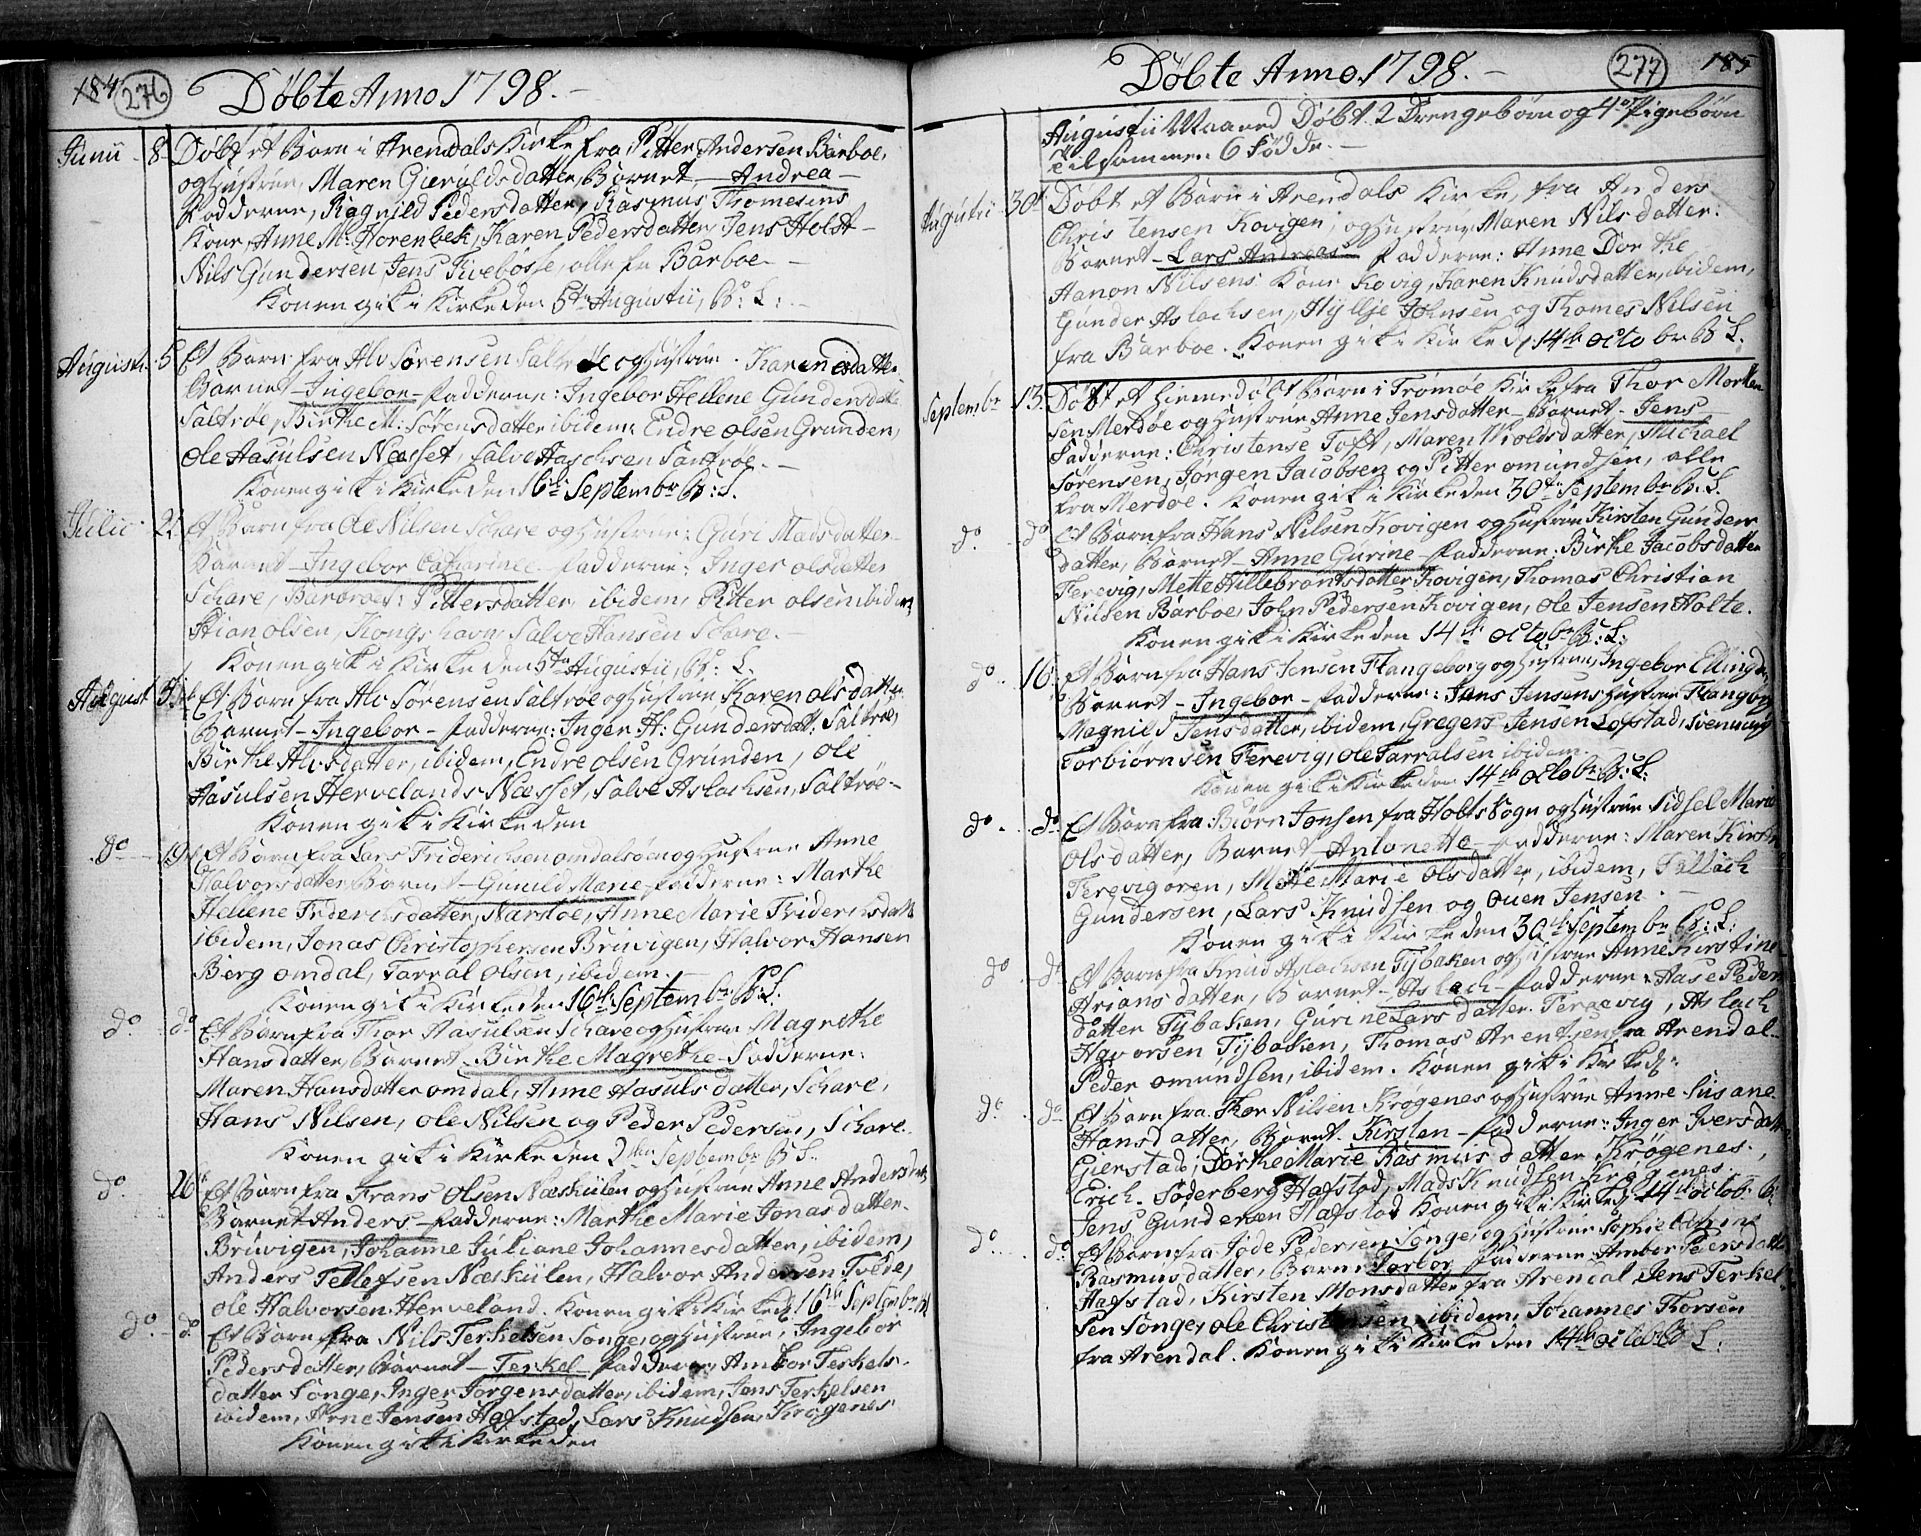 184 276 Döbte Anno 1798.
Junii 8 Döbt et Barn i Arendals Kirke fra Pitter Andersen Barboe,
og Hustrue, Maren Gieruldsdatter, Barnet, Andrea
Fadderne, Ragnild Pedersdatter, Rasmus Thomesens
Kone, Anne M: Horenbek, Karen Pedersdatter, Jens Holst
Nils Gundersen, Jens alle fr Barboe.
Konen gik i Kirke den 5te Augustii, B: L:
Augusti 5 Et Barn fra Alv Sörensen Saltröe og Hustrue. Karen datter
Barnet Ingebor Fadderne: Ingebor Hellene Gundersdatt
Saltröe, Birthe M: Sörensdatter ibidem, Endre Olsen Grunden,
Ole Aasulsen Næsset, Salve Aaschsen Saltröe.
Konen gik i Kirke den 16de Septembr B: L.
Julii 22 Et Barn fra Ole Nilsen Schare og Hustrue: Guri Madsdatter
Barnet Ingebor Catharinee Fadderne: Inger Olsdatter
Schare, Barbroe Pittersdatter, ibidem, Pitter Olsen ibidem,
Stian Olsen, Kongshavn, Salve Hansen Schare.
Konen gik i Kirke den 5te Augustii, B: L.
August 5te Et Barn fra Alv Sörensen Saltröe og Hustrue Karen Olsdatter
Barnet Ingebor Fadderne: Inger H: Gundersdatt: Saltröe,
Birthe Alvsdatter, ibidem, Endre Olsen Grunden, Ole
Aasulsen Hervelands Næsset, Salve Aslachsen, Saltröe
Konen gik i Kirke den
do 19 Et Barn fra Lars Friderichsen Omdalsöen og Hustrue Anne
Halvorsdatter, Barnet Gunild Marie Fadderne: Marthe
Hellene Friderichsdatter, Narstöe, Anne Marie Friderichsdatt
ibidem, Jonas Christophersen Bruvigen, Halvor Hansen
Berg Omdal, Tarral Olsen, ibidem.
Konen gik i Kirke den 16de Septembr B: L:
do do Et Barn fra Thor Aasulsen Schare og Hustrue Magrethe
Hansdatter, Barnet Birthe Magrethe Fadderne:
Maren Hansdatter Omdal, Anne Aasuls datter, Schare,
Hans Nilsen, Ole Nilsen og Peder Pedersen, Schare.
Konen gik i Kirke den 2den Septembr B: L.
do 26 Et Barn fra Frans Olsen Næskilen og Hustrue Anne Andersdatt
Barnet Anders Fadderne: Marthe Marie Jonasdatter
Bruvigen, Johanne Juliane Johannesdatter, ibidem,
Anders Tellefsen Næskilen, Halvor Andersen Tvede,
Ole Halvorsen Herveland. Konen gik i Kirke d: 16de Septembr B:L
do do Et Barn fra Nils Terkelsen Songe, og Hustrue, Ingebor
Pedersdatter, Barnet Terkel Fadderne, Ambor Terkels-
datter Songe, Inger Jörgensdatter, ibidem, Jens Terkelsen
ibidem, Arne Jensen Hafstad, Lars Knudsen, Krögenes
Konen gik i Kirke den
Döbte Anno 1798. 277 185
Augustii Maaned Döbt 2 Drengebörn og 4 Pigebörn
Tilsammen 6 Födde.
Augustii 30te Döbt et Barn i Arendals Kirke, fra Anders
Christensen Kovigen, og Hustrue Maren Nilsdatter:
Barnet Lars Andreas Fadderne: Anne Dorthe
Hanon Nilsens Kone Kovig, Karen Knudsdatter, ibidem,
Gunder Aslachsen, Hyllje Johnsen og Thomes Nilsen
fra Barboe. Konen gik i Kirke d: 14de Octobr B: L.
Septembr 13. Döbt et Hiemedöbt Barn i Tromöe Kirke fra Thor Morten
sen Merdöe og Hustrue Anne Jensdatter Barnet Jens
Fadderne: Christense Toft, Maren Violdsdatter, Michael
Sörensen, Jörgen Jacobsen og Pitter Omundsen, alle
fra Merdöe. Konen gik i Kirke den 30te Septembr B: L.
do do Et Barn fra Hans Nilsen Kovigen og Hustrue Kirsten Gunders
datter, Barnet Anne Gurine Fadderne: Birthe Jacobsdatter
Ferevig, Mette Hillebrantsdatter Kovigen, Thomas Christian
Nilsen Barboe, John Pedersen Kovigen, Ole Jensen Holte.
Konen gik i Kirke den 14de Octobr B: L:
do 16 Et Barn fra Hans Jensen Flangeborg og Hustrue, Ingebor Ellingd.
Barnet Ingebor Fadderne: Jens Jensens Hustrue Flangborg
Magnild Jensdatter, ibidem, Gregers Jensen Lofstad, Svennung
Torbiörnsen Ferevig, Ole Tarralsen ibidem.
Konen gik i Kirke den 14de Octobr B: L:
do do Et Barn fra Biörn Jonsen fra Holts Sogn og Hustrue Sidsel Marie
Olsdatter, Barnet Antonette Fadderne: Maren Kirst
Ferevigoren, Mette Marie Olsdatter, ibidem, Tallach
Gundersen, Lars Knudsen og Ouen Jensen.
Konen gik i Kirke den 30te Septembr B: L:
do do Et Barn fra Knud Aslachsen Tybaken og Hustrue Anne Kirstine
Arians datter, Barnet Aslach Fadderne: Aase Peders
datter Tybaken, Gurine Lars datter Fergevig, Aslach
Havorsen Tybaken, Thomas Arentsen fra Arendal
Peder Omundsen, ibidem. Konen gik i Kirke d:
do do Et Barn fra Thor Nilsen Krögenes og Hustrue Anne Susane
Hansdatter, Barnet Kirsten Fadderne: Inger Iversdatt
Gierstad, Dorthe Marie Rasmus datter Krögenes,
Erich Söderberg Hafstad, Mads Knudsen Krögenes.
Jens Gundersen Hafstad Konen gik i Kirke d: 14de Octob B:
do do Et Barn fra Jöde Pedersen Songe, og Hustrue Sophie
Rasmusdatter, Barnet Torbor Fadderne Ambor Pedersdatt
Hafstad, Kirsten Monsdatter fra Arendal Jens Terkel
sen Songe, Ole Christensen ibidem, Johannes Thorsen
fra Arendal. Konen gik i Kirke den 14de Octob B L: